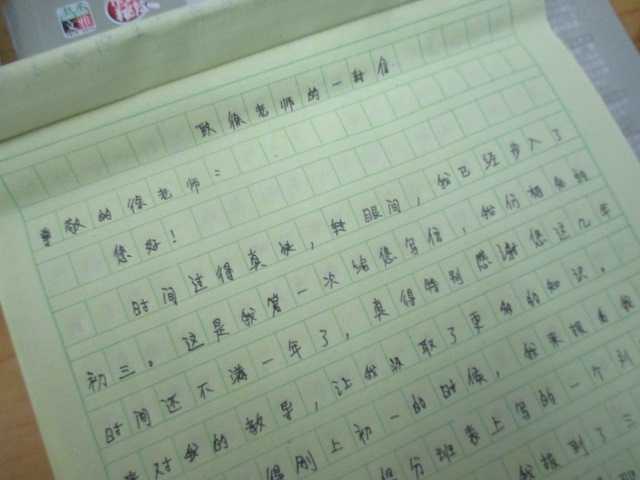 致徐老师的一封信
尊敬的徐老师：
您好！
时间过得真快，转眼间，我已经步入了
初三。这是我第一次给您写信，我们相处的
时间还不满一年了，真得特别感谢您这几年
来对我的教导，让我汲取了更多的知识。
得刚上初一的时候，我来报名
得分班表上写的一个
我接到了三